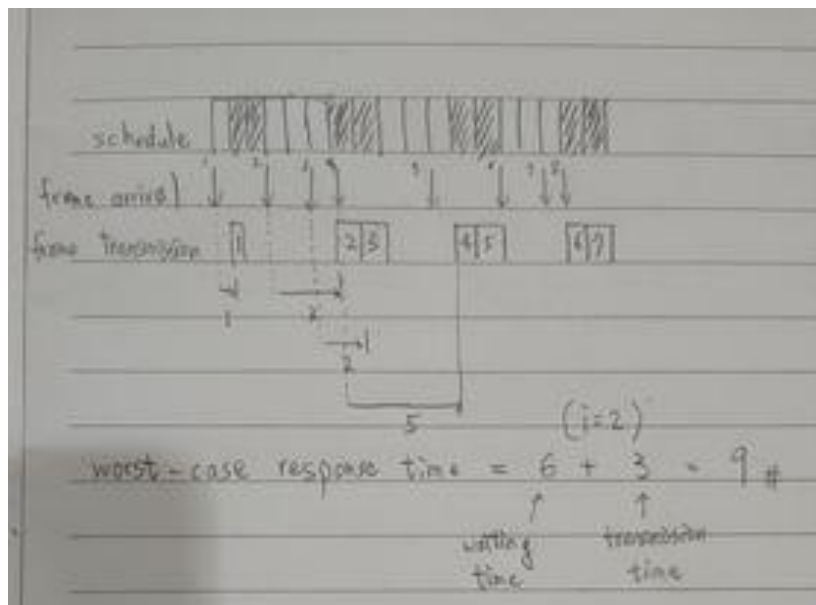 schedule
1 2 3 4 5 6 7 8
frame arrival
frame transmission 1 2 3 4 5 6 7
1 2
2
5
(i=2)
worst-case response time = 6 + 3 = 9 #
↑ ↑
waiting transmission
time time